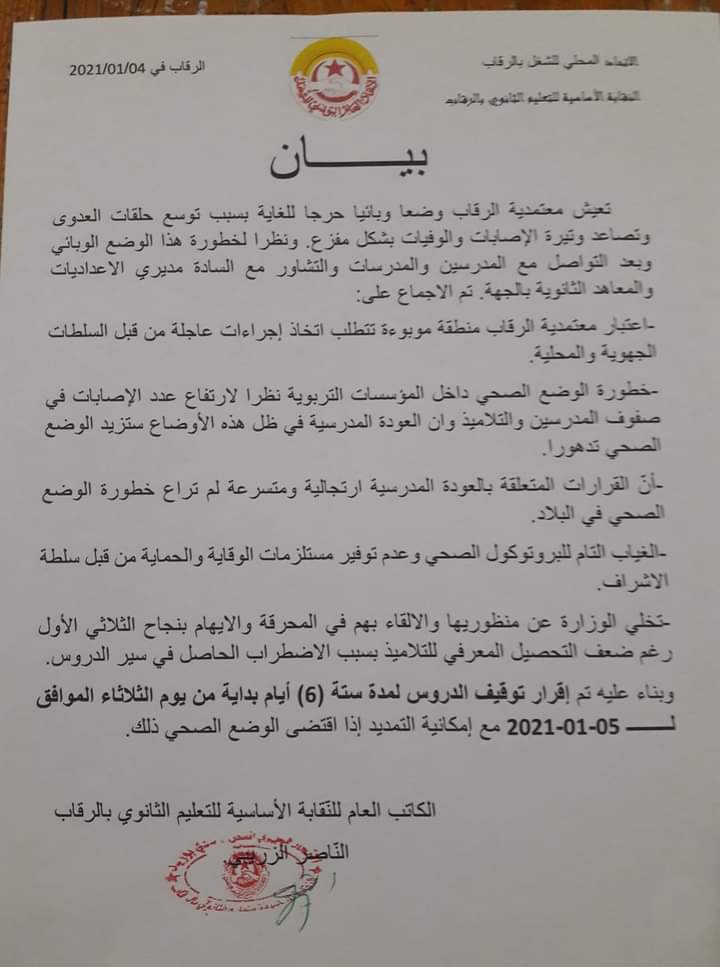 الاتحاد المحلي للشغل بالرقاب
الرقاب في 2021/01/04
النقابة الأساسية للتعليم الثانوي بالرقاب
الاتحاد العام التونسي للشغل
بيـــــان
تعيش معتمدية الرقاب وضعا وبائيا حرجا للغاية بسبب توسع حلقات العدوى
وتصاعد وتيرة الإصابات والوفيات بشكل مفزع. ونظرا لخطورة هذا الوضع الوبائي
وبعد التواصل مع المدرسين والمدرسات والتشاور مع السادة مديري الاعداديات
والمعاهد الثانوية بالجهة. تم الاجماع على:
-اعتبار معتمدية الرقاب منطقة موبوءة تتطلب اتخاذ إجراءات عاجلة من قبل السلطات
الجهوية والمحلية.
-خطورة الوضع الصحي داخل المؤسسات التربوية نظرا لارتفاع عدد الإصابات في
صفوف المدرسين والتلاميذ وان العودة المدرسية في ظل هذه الأوضاع ستزيد الوضع
الصحي تدهورا.
-أنّ القرارات المتعلقة بالعودة المدرسية ارتجالية ومتسرعة لم تراع خطورة الوضع
الصحي في البلاد.
-الغياب التام للبروتوكول الصحي وعدم توفير مستلزمات الوقاية والحماية من قبل سلطة
الاشراف.
-تخلي الوزارة عن منظوريها والالقاء بهم في المحرقة والايهام بنجاح الثلاثي الأول
رغم ضعف التحصيل المعرفي للتلاميذ بسبب الاضطراب الحاصل في سير الدروس.
وبناء عليه تم إقرار توقيف الدروس لمدة ستة (6) أيام بداية من يوم الثلاثاء الموافق
لـــــ 05-01-2021 مع إمكانية التمديد إذا اقتضى الوضع الصحي ذلك.
الكاتب العام للنّقابة الأساسية للتعليم الثانوي بالرقاب
النّاصر الزريبي